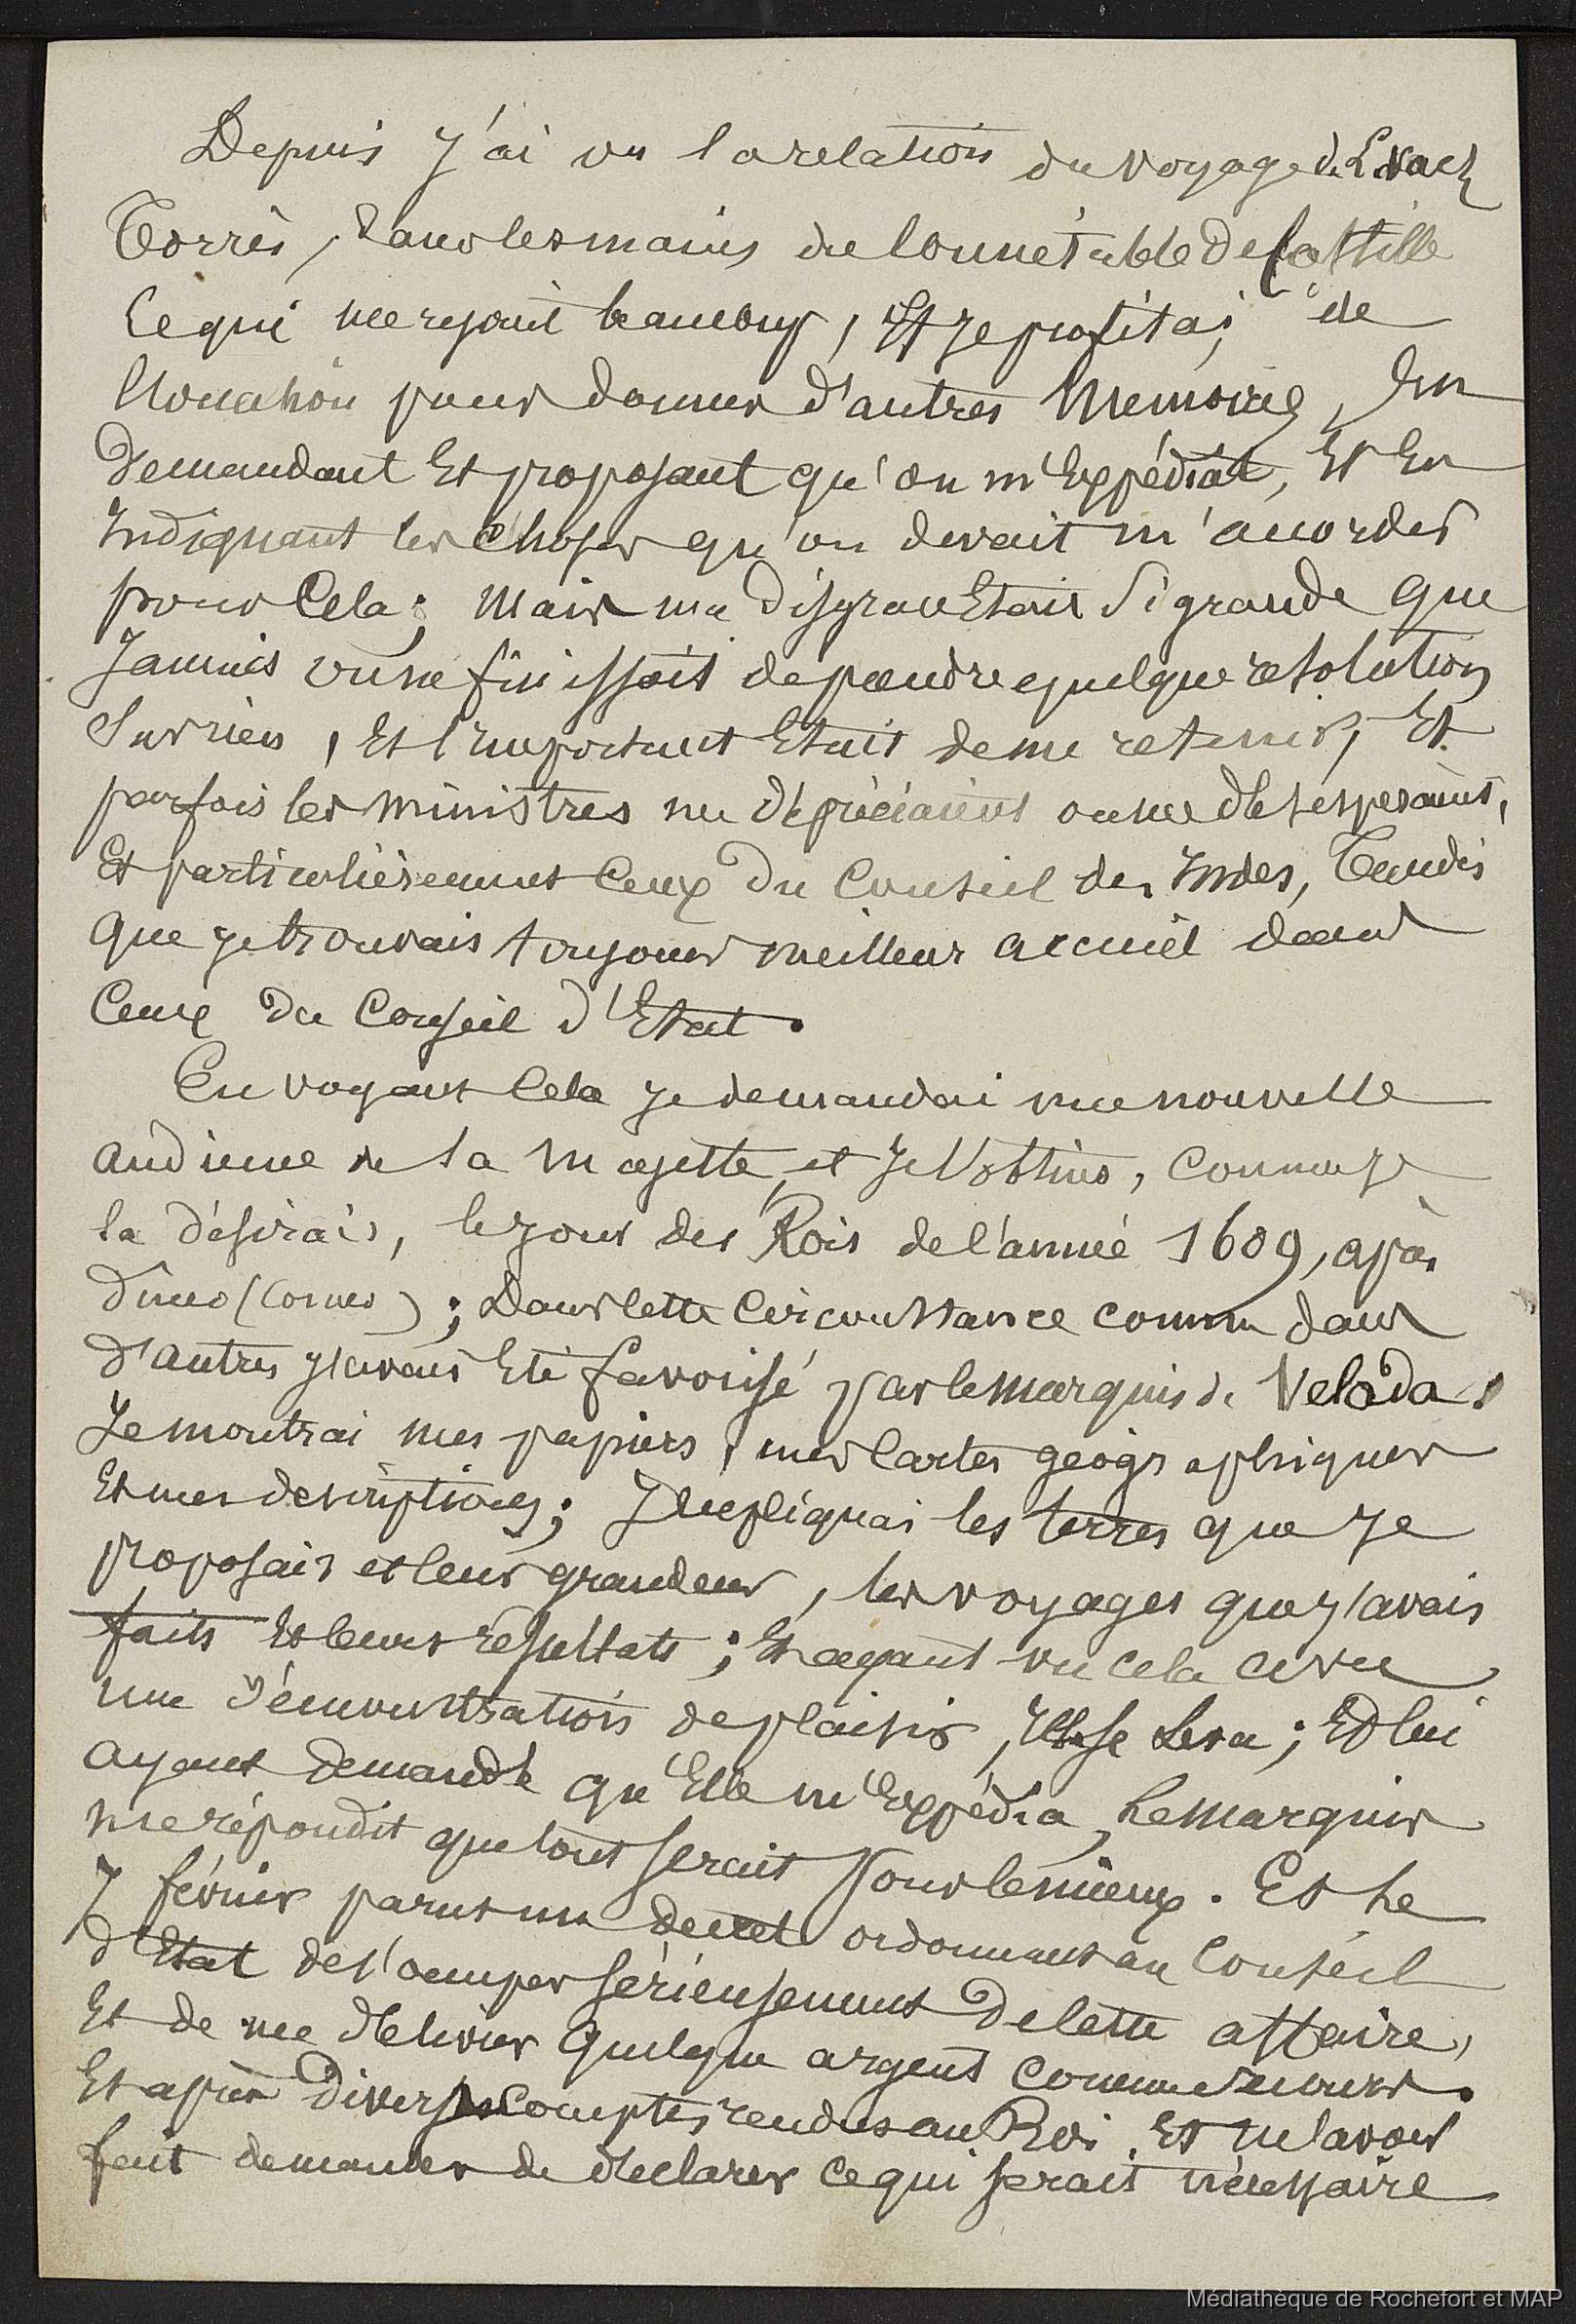 Depuis j'ai vu la relation du voyage de L. vaez
Torrès, dans les mains du Connétable de Castille
Ce qui me rejouit beaucoup, Et je profitai de
l'occasion pour donner d'autres Memoires, En
demandant Et proposant qu'on m'Expédiat, Et En
Indiquant les choses qu'on devait m'accorder
pour Cela; Mais ma disgrace Etait si grande que
Jamais on ne finissait de prendre quelque resolution
sur rien, Et l'Important Etait de me retenir, Et
parfois les ministres me dépréciaient ou me désesperaient,
Et particulièrement Ceux du Conseil des Indes, Tandis
que je trouvais toujours meilleur accueil dans
Ceux du Conseil d'Etat.
En voyant Cela je demandai une nouvelle
audience de Sa Majesté, et je l'obtins, comme je
la désirais, le jour des Rois de l'année 1609, après
diner (Comer); Dans cette Circonstance comme dans
d'autres j'avais Eté favorisé par le marquis de Velada.
Je montrai mes papiers, mes Cartes géographiques
Et mes descriptions; J'expliquai les terres que je
proposais et leur grandeur, les voyages que j'avais
faits Et leurs résultats; Et ayant vu cela avec
une démonstration de plaisir, Elle se leva; Et lui
ayant demandé qu'Elle m'Expédia, Le Marquis
me répondit que tout serait pour le mieux. Et Le
7 février parut un decret ordonnant au Conseil
d'Etat de s'occuper sérieusement de Cette affaire,
Et de me délivrer quelque argent comme secours.
Et après divers Comptes rendus au Roi, Et m'avoir
fait demander de déclarer ce qui serait nécessaire
Médiathèque de Rochefort et MAP